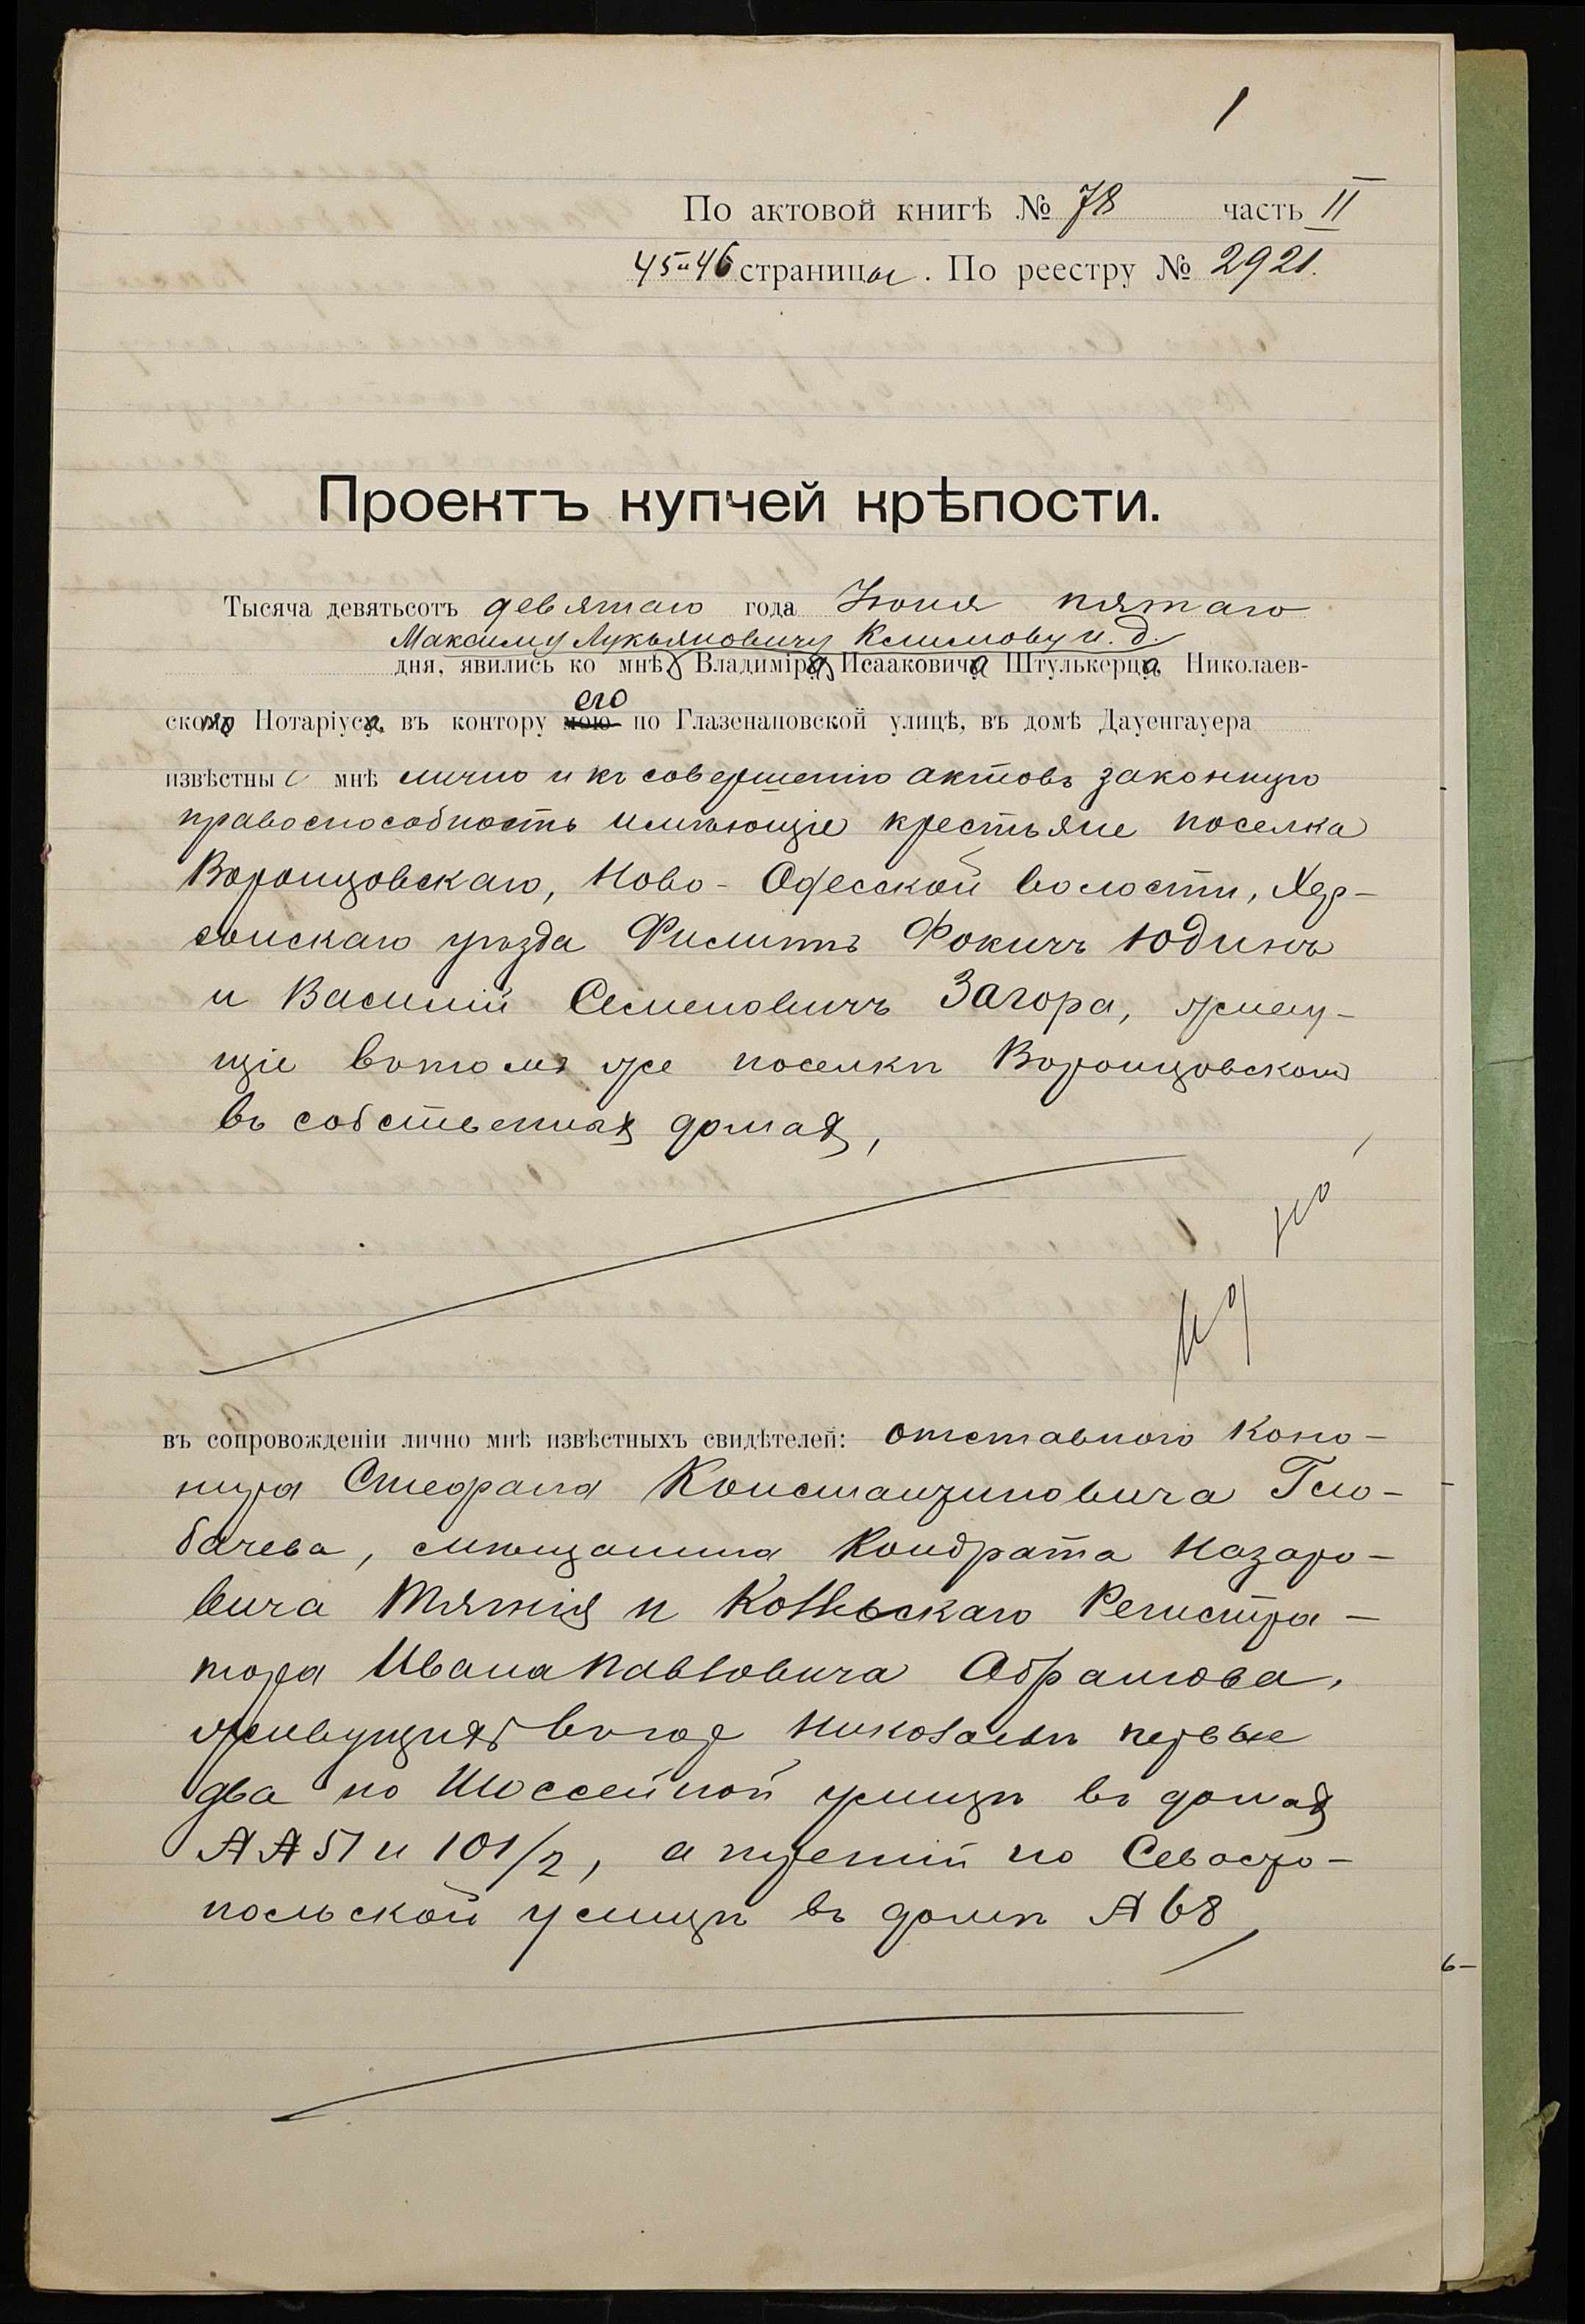 1
По актовой книгѣ № 78 часть II
45 и 46 страницы. По реестру № 2921.
Проектъ купчей крѣпости.
Тысяча девятьсотъ девятаго года Іюня пятаго
Максиму Лукьяновичу Климову и. д.
дня, явились ко мнѣ, Владиміра Исааковича Штулькерца Николаев-
его
скаго Нотаріуса, въ контору мою по Глазенаповской улицѣ, въ домѣ Дауенгауера
извѣстные мнѣ лично и къ совершенію актовъ законную
правоспособность имѣющіе крестьяне поселка
Воронцовскаго, Ново-Одесской волости, Хер-
сонскаго уѣзда Филиппъ Фокичъ Юдинъ
и Василій Семеновичъ Загора, живу-
щіе въ томъ же поселкѣ Воронцовскомъ
въ собственныхъ домахъ,
въ сопровожденіи лично мнѣ извѣстныхъ свидѣтелей: отставного Коно-
нира Стефана Константиновича Гло-
бачева, мѣщанина Кондрата Назаро-
вича и Коллежскаго Регистра-
тора Ивана Павловича Абрамова,
живущихъ въ гор. Николаевѣ первые
два по Шоссейной улицѣ въ домахъ
№№ 51 и 101/2, а третій по Севасто-
польской улицѣ въ домѣ № 68